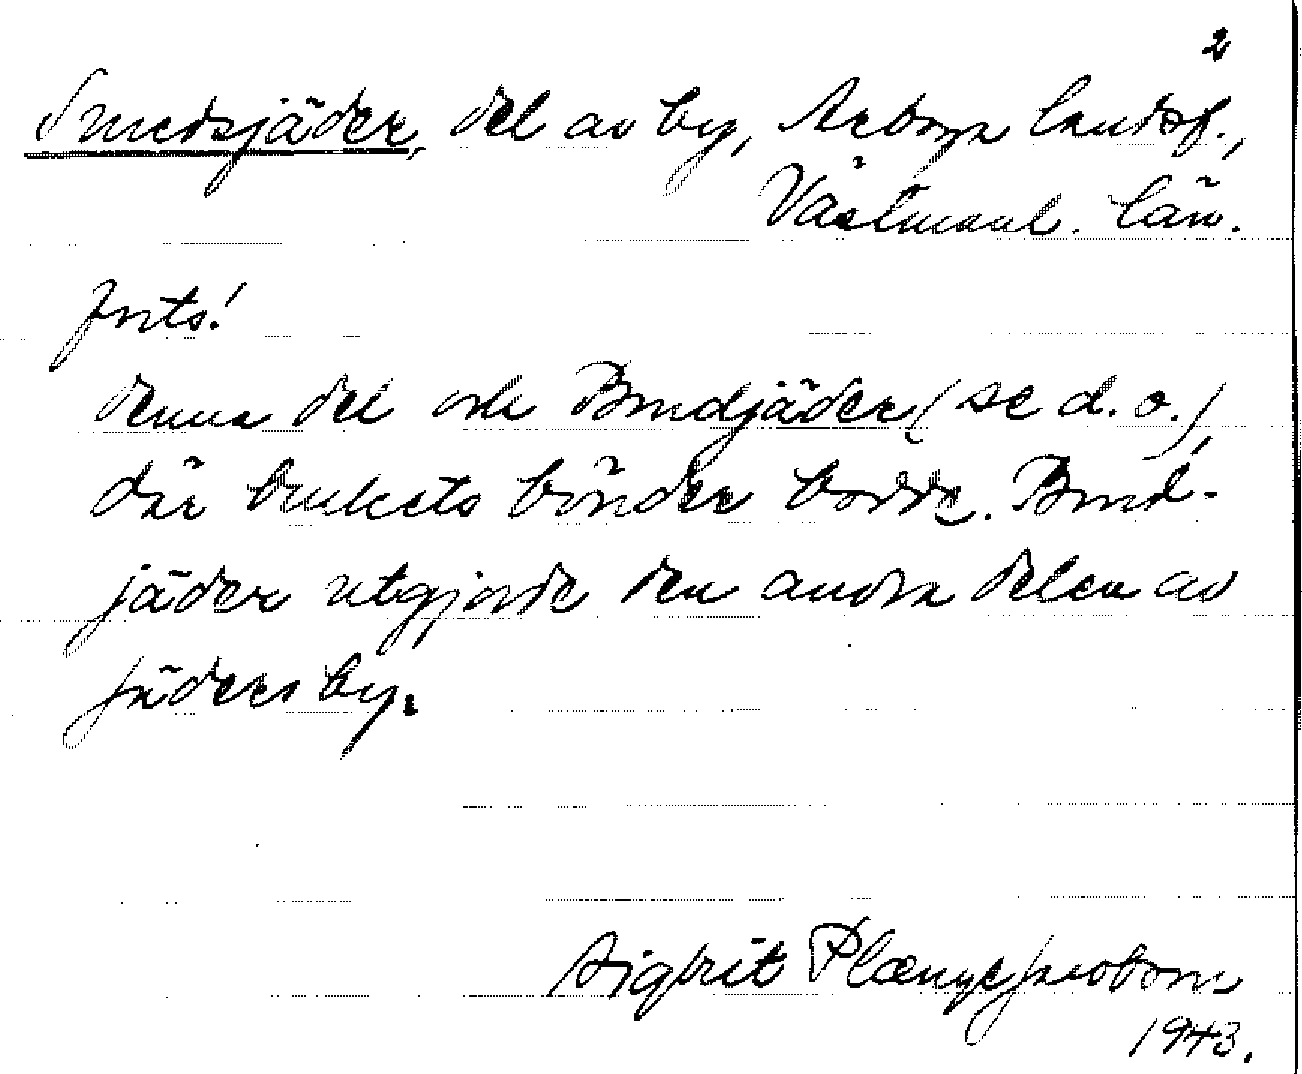 2
Smedsjäder, del av by, Arboga landsf.,
Västmanl. län.
forts!
denna del och Bondjäder (se d. o.),
där brukets bönder bodde. Bond-
jäder utgjorde den andra delen av
Jäders by.
Sigfrit Plænge Jacobson
1943.